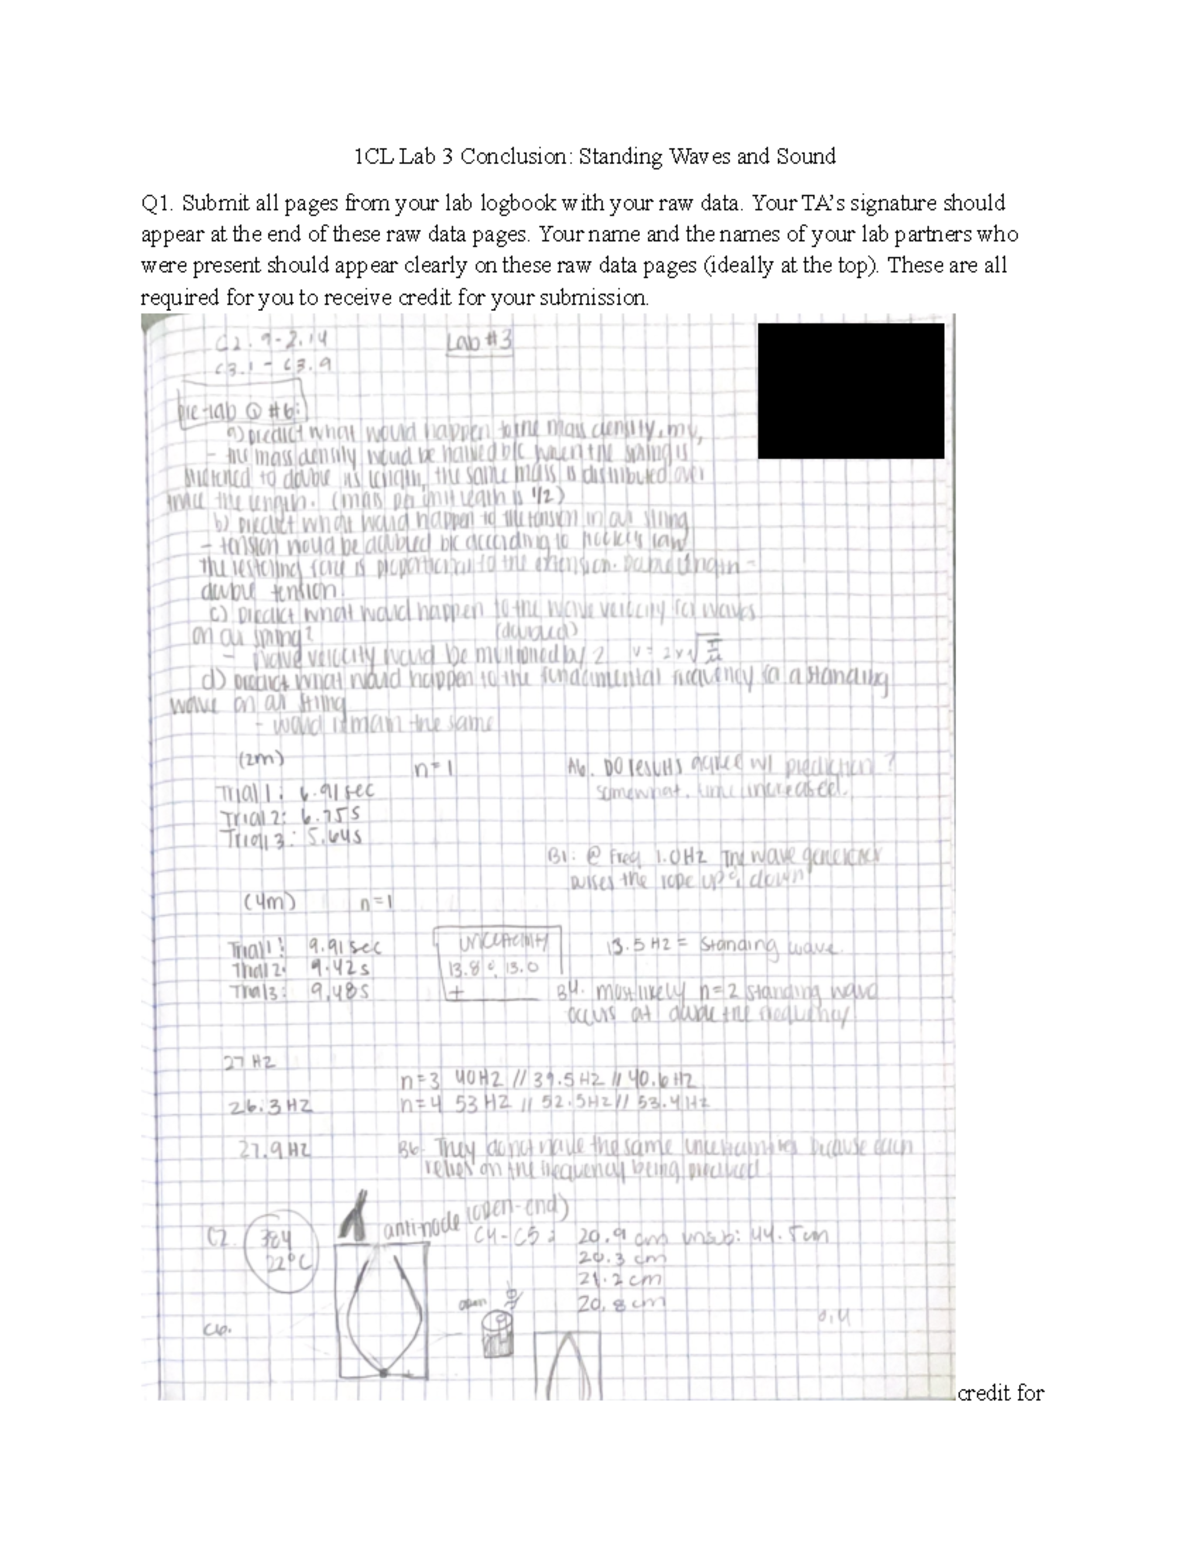 1CL Lab 3 Conclusion: Standing Waves and Sound
Q1. Submit all pages from your lab logbook with your raw data. Your TA's signature should
appear at the end of these raw data pages. Your name and the names of your lab partners who
were present should appear clearly on these raw data pages (ideally at the top). These are all
required for you to receive credit for your submission.
C2.9-2.14
Lab #3
C3.1 - C3.9
pre-lab Q #6:
a) predict what would happen to the mass density, mu,
- the mass density would be halved b/c when the spring is
stretched to double its length, the same mass is distributed over
twice the length. (mass per unit length is 1/2)
b) predict what would happen to the tension in our string
- tension would be doubled b/c according to hooke's law
the restoring force is proportional to the extension. Double length =
double tension.
c) predict what would happen to the wave velocity for waves
on our spring?
(doubled)
- wave velocity would be multiplied by 2 v = 2 x √T/μ
d) predict what would happen to the fundamental frequency for a standing
wave on our string
- would remain the same
(2m)
n=1
A6. DO results agree w/ prediction?
Trial 1: 6.91 sec
somewhat. time increased.
Trial 2: 6.75s
Trial 3: 5.64s
B1: @ freq 1.0Hz The wave generator
raises the rope up & down
(4m) n=1
Trial 1: 9.91 sec
uncertainty
13.5 Hz = standing wave
Trial 2: 9.42s
13.8 13.0
Trial 3: 9.48s
±
B4. most likely n=2 standing wave
occurs at double the frequency
27 Hz
n=3 40Hz // 39.5Hz // 40.6Hz
26.3 Hz
n=4 53 Hz // 52.5Hz // 53.4Hz
27.9 Hz
B6. They do not have the same uncertainties because each
relies on the frequency being produced
anti-node (open-end)
C2. 384
22°C
C4-C5: 20.9 cm unsub: 44.5cm
20.3 cm
21.2 cm
open
20.8 cm
C6.
0.4
credit for